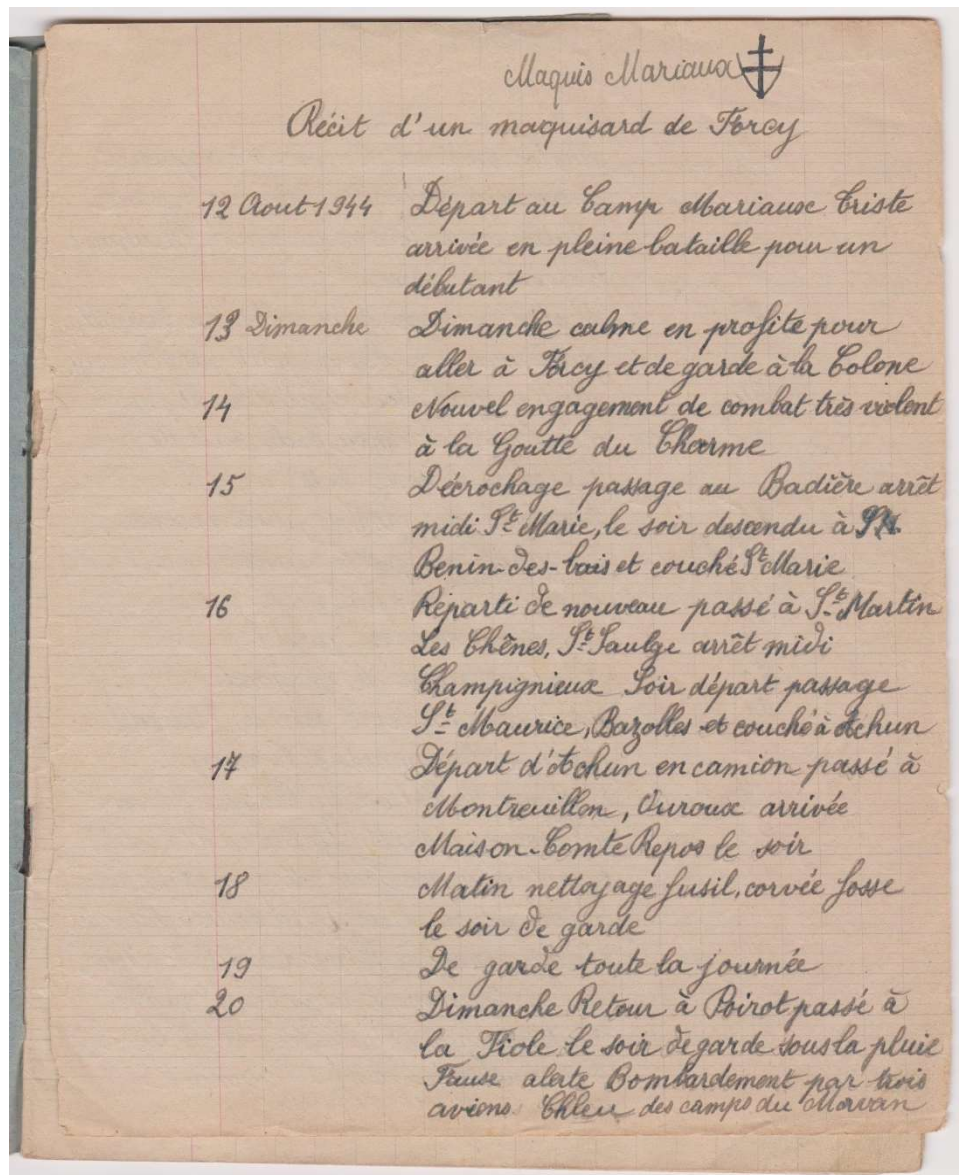 Maquis Mariaux
Récit d'un maquisard de Forcy
12 Aout 1944 Départ au Camp Mariaux Triste
arrivée en pleine bataille pour un
débutant
13 Dimanche Dimanche calme en profite pour
aller à Forcy et de garde à la Colone
14 Nouvel engagement de combat très violent
à la Goutte du Charme
15 Décrochage passage au Badière arrêt
midi St Marie, le soir descendu à
Benin-des-bois et couché St Marie
16 Réparti de nouveau passé à St Martin
Les Chênes, St Saulge arrêt midi
Champignieux Soir départ passage
St Maurice, Bazolles et couché à Achun
17 Départ d'Achun en camion passé à
Montreuillon, Ouroux arrivée
Maison-Comte Repos le soir
18 Matin nettoyage fusil, corvée fosse
le soir de garde
19 De garde toute la journée
20 Dimanche Retour à Poirot passé à
la Fiole le soir de garde sous la pluie
Fause alerte Bombardement par trois
avions Chleu des camps du Morvan